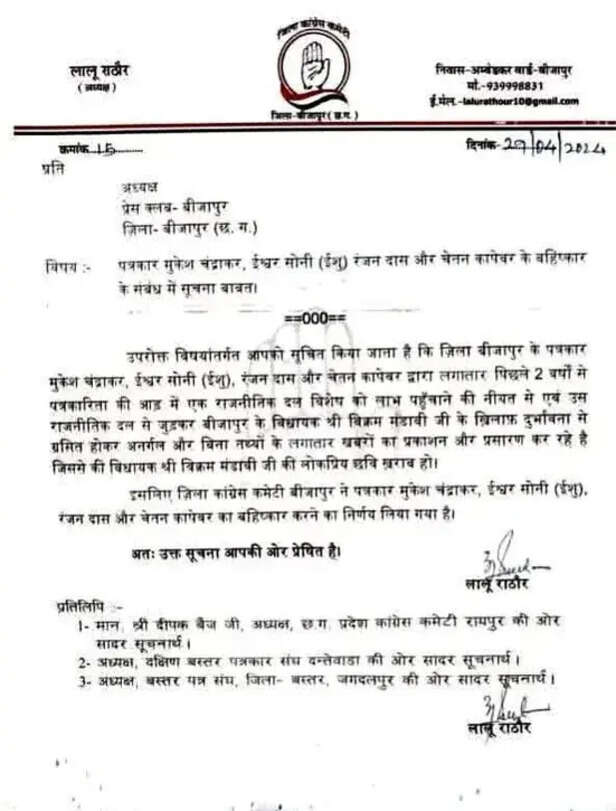 जिला कांग्रेस कमेटी
लालू राठौर
(अध्यक्ष)
निवास-अम्बेडकर वार्ड-बीजापुर
मो.-939998831
ई.मेल.-lalurathour10@gmail.com
जिला-बीजापुर (छ.ग.)
क्रमांक 15
दिनांक-29/04/2024
प्रति
अध्यक्ष
प्रेस क्लब- बीजापुर
ज़िला- बीजापुर (छ. ग.)
विषय :- पत्रकार मुकेश चंद्राकर, ईश्वर सोनी (ईशु) रंजन दास और चेतन कापेवर के बहिष्कार
के संबंध में सूचना बावत।
==000==
उपरोक्त विषयांतर्गत आपको सूचित किया जाता है कि ज़िला बीजापुर के पत्रकार
मुकेश चंद्राकर, ईश्वर सोनी (ईशु), रंजन दास और चेतन कापेवर द्वारा लगातार पिछले 2 वर्षों से
पत्रकारिता की आड़ में एक राजनीतिक दल विशेष को लाभ पहुँचाने की नीयत से एवं उस
राजनीतिक दल से जुड़कर बीजापुर के विधायक श्री विक्रम मंडावी जी के ख़िलाफ़ दुर्भावना से
ग्रसित होकर अनर्गल और बिना तथ्यों के लगातार खबरों का प्रकाशन और प्रसारण कर रहे है
जिससे की विधायक श्री विक्रम मंडावी जी की लोकप्रिय छवि ख़राब हो।
इसलिए ज़िला कांग्रेस कमेटी बीजापुर ने पत्रकार मुकेश चंद्राकर, ईश्वर सोनी (ईशु),
रंजन दास और चेतन कापेवर का बहिष्कार करने का निर्णय लिया गया है।
अतः उक्त सूचना आपकी ओर प्रेषित है।
लालू राठौर
प्रतिलिपि :-
1- मान. श्री दीपक बैज जी, अध्यक्ष, छ.ग. प्रदेश कांग्रेस कमेटी रायपुर की ओर
सादर सूचनार्थ।
2- अध्यक्ष, दक्षिण बस्तर पत्रकार संघ दन्तेवाडा की ओर सादर सूचनार्थ।
3- अध्यक्ष, बस्तर पत्र संघ, जिला- बस्तर, जगदलपुर की ओर सादर सूचनार्थ।
लालू राठौर